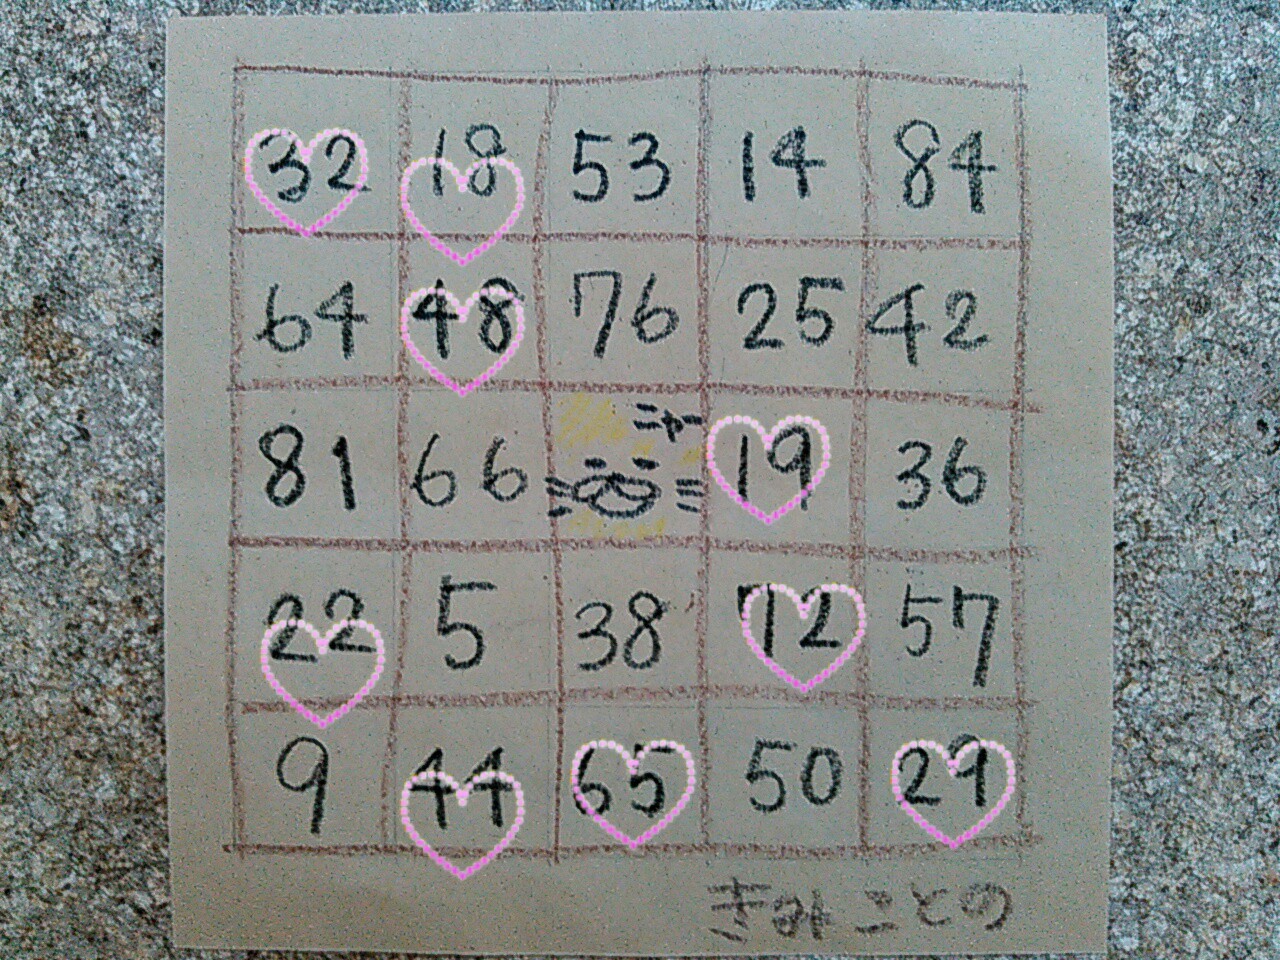 32 18 53 14 84
64 48 76 25 42
ニャー
81 66 19 36
22 5 38 12 57
9 44 65 50 29
きみことの